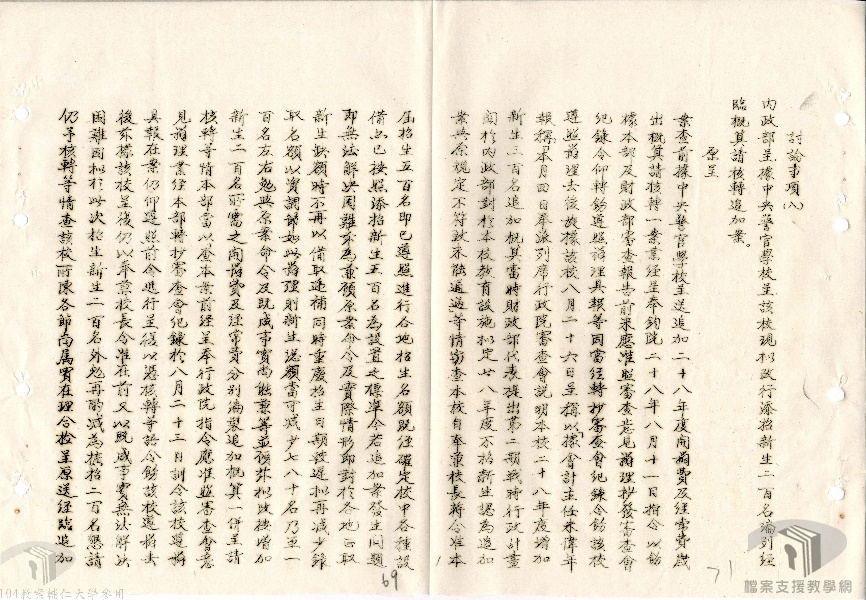 討論事項(八)
內政部呈據中央警官學校呈該校現擬改行添招新生二百名編列經
臨概算請核轉追加案。
原呈
案查前據中央警官學校呈送追加二十八年度開辦費及經常費歲
出概算請核轉一案業經呈奉鈞院二十八年八月十一日指令以飭
據本部及財政部審查報告前來應准照審查意見辦理抄發審查會
紀錄令仰轉飭遵照辦理具報等因當經轉抄審查會紀錄令飭該校
遵照辦理去後茲據該校八月二十六日呈稱以「據會計主任朱偉年
報稱「本月四日奉派列席行政院審查會說明本校二十八年度增加
新生三百名追加概算當時財政部代表提出第二期戰時行政計畫
關於內政部對於本校教育設施擬定廿八年度不招新生認為追加
案與原規定不符致未能通過等情審查本校自奉兼校長蔣令准本
屆招生五百名即已遵照進行各地招生名額既經確定校中各種設
備亦已按照添招新生五百名為設置之標準今若追加案發生問題
即無法解決困難茲為兼顧原案命令及實際情形即對於各地已取
新生缺額時不再以備取遞補同時重慶招生日期較遲擬再減少錄
取名額以資調節如此辦理則新生總額當可減少七八十名乃至一
百名左右勉與原案命令及既成事實兩能兼籌並顧茲擬改按增加
新生二百名所需之開辦費及經常費分別編製追加概算一併呈請
核轉等情本部當以查本案前經呈奉行政院指令應准照審查會意
見辦理業經本部轉抄審查會紀錄於八月二十三日訓令該校遵辦
具報在案仍仰遵照前令進行呈復以憑核轉等語令飭該校遵辦去
後茲據該校呈復仍以奉章校長令准在前又以既成事實無法解決
困難因擬於此次招生新生二百名外免再酌減為擴招二百名懇請
仍予核轉等情查該校所陳各節尚屬實在理合檢呈原送經臨追加
69
71
檔案支援教學網
104教案輔仁大學參用